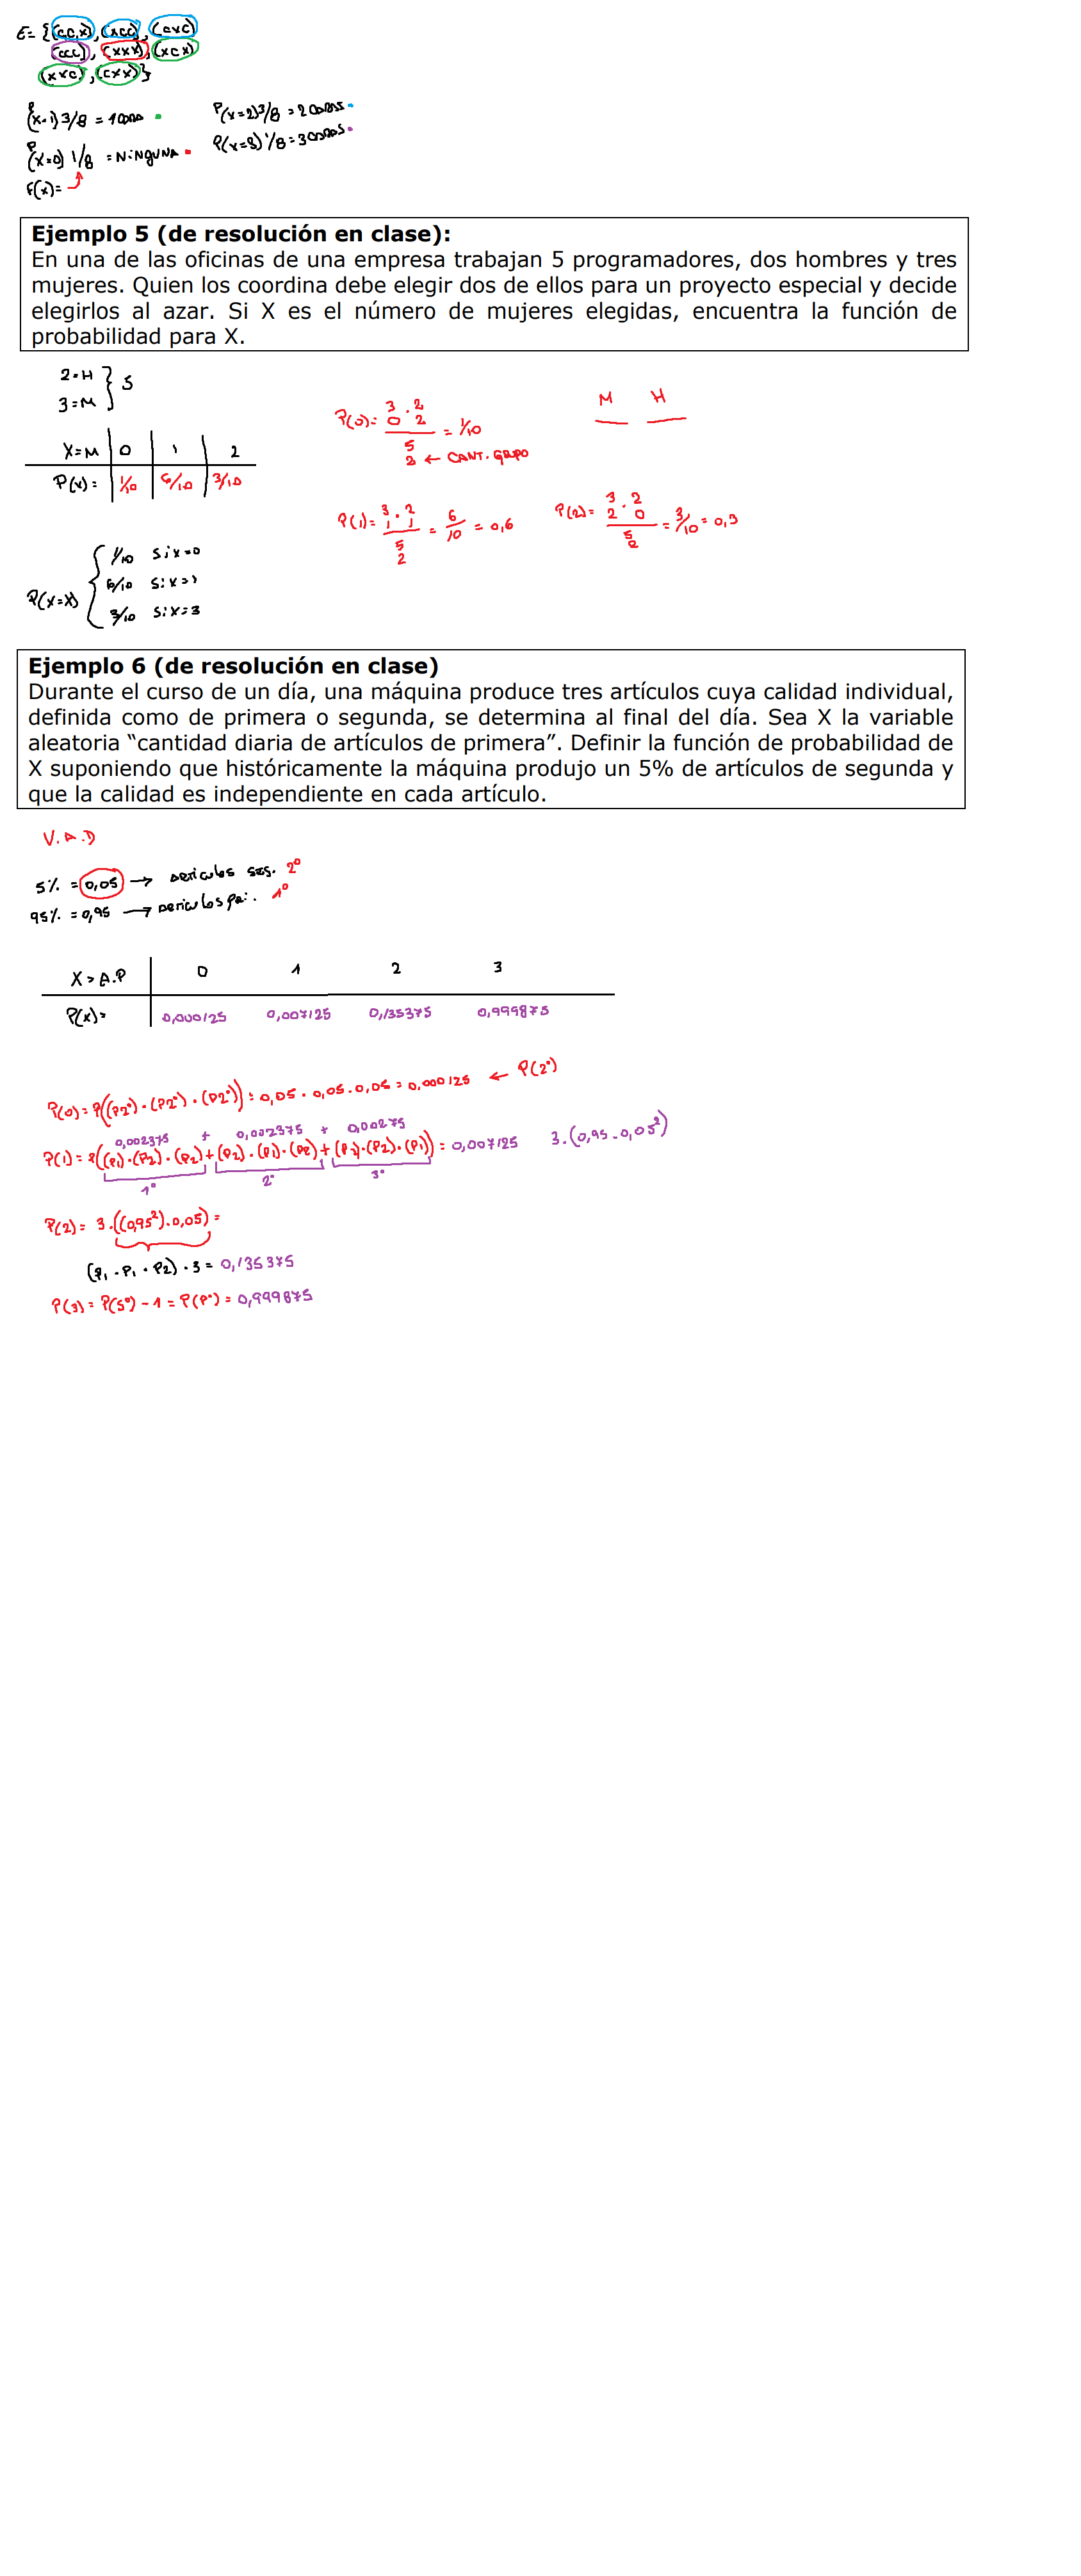 E= {(cc,x), (xcc), (cxc)
(ccc), (xxx), (xcx)
(xxc), (cxx)}
P(x=1) 3/8 = 1 cara
P(x=2) 3/8 = 2 caras
P(x=0) 1/8 = NINGUNA
P(x=3) 1/8 = 3 caras
F(x)=
Ejemplo 5 (de resolución en clase):
En una de las oficinas de una empresa trabajan 5 programadores, dos hombres y tres
mujeres. Quien los coordina debe elegir dos de ellos para un proyecto especial y decide
elegirlos al azar. Si X es el número de mujeres elegidas, encuentra la función de
probabilidad para X.
2=H
3=M } 5
M H
X=M 0 1 2
P(x)= 1/10 6/10 3/10
P(0)= 3 . 2
0 2 = 1/10
5
2 ← CANT. GRUPO
P(1)= 3 . 2
1 1 = 6/10 = 0,6
5
2
P(2)= 3 . 2
2 0 = 3/10 = 0,3
5
2
P(X=x) { 1/10 si x=0
6/10 si x=1
3/10 si x=3
Ejemplo 6 (de resolución en clase)
Durante el curso de un día, una máquina produce tres artículos cuya calidad individual,
definida como de primera o segunda, se determina al final del día. Sea X la variable
aleatoria “cantidad diaria de artículos de primera”. Definir la función de probabilidad de
X suponiendo que históricamente la máquina produjo un 5% de artículos de segunda y
que la calidad es independiente en cada artículo.
V.A.D
5% = 0,05 → articulos seg. 2°
95% = 0,95 → articulos pri. 1°
X=A.P 0 1 2 3
P(x)= 0,000125 0,007125 0,135375 0,999875
P(0)= P((P2°) . (P2°) . (P2°)) = 0,05 . 0,05 . 0,05 = 0,000125 ← P(2°)
0,002375 + 0,002375 + 0,00275
P(1)= P((P1).(P2).(P2)+(P2).(P1).(P2)+(P2).(P2).(P1)) = 0,007125 3.(0,95 . 0,05²)
1° 2° 3°
P(2)= 3.((0,95²).0,05) =
(P1 . P1 . P2) . 3 = 0,135375
P(3)= P(S°) - 1 = P(P°) = 0,999875